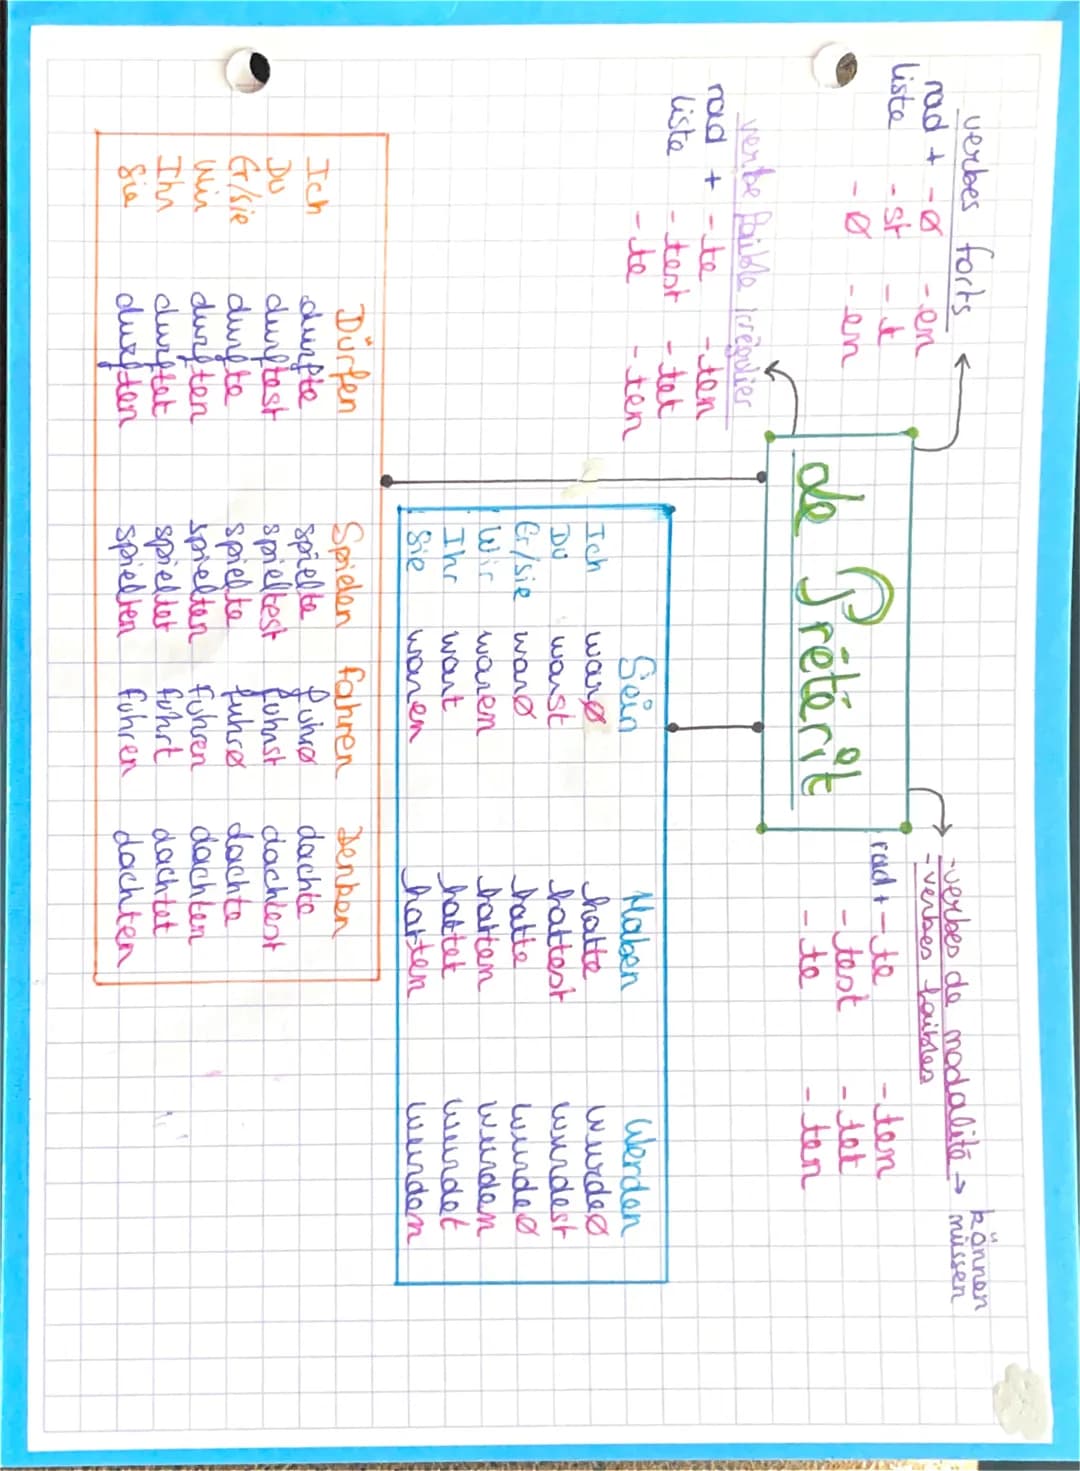 verbes forts
rad + -ø -en
liste -st -t
-ø -en
verbe faible irrégulier
rad + -te -ten
liste -test -tet
-te -ten
de Prétérit
-verbes de modalité → können
müssen
-verbes faibles
rad + -te -ten
-test -tet
-te -ten
Sein Haben Werden
Ich warø hatte wurdeø
Du warst hattest wurdest
Er/sie warø hatte wurdeø
Wir waren hatten wurden
Ihr wart hattet wurdet
Sie waren hatten wurden
Dürfen Spielen fahren Denken
Ich durfte spielte fuhrø dachte
Du durftest spieltest fuhrst dachtest
Er/sie durfte spielte fuhrø dachte
Wir durften spielten fuhren dachten
Ihr durftet spieltet fuhrt dachtet
Sie durften spielten fuhren dachten